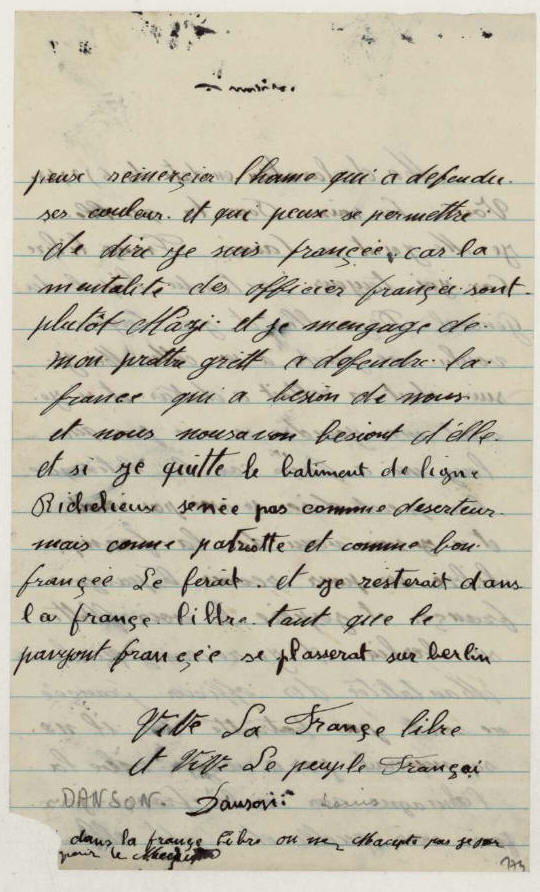 peuse remerçier lhome qui a defendu.
ses couleur. et qui peuse se permettre
de dire ye suis françée. car la
mentalite des officier françée sont.
plutôt Nazi. et je mengage de.
mon prottre grëtt a defendre la.
france qui a besion de nous.
et nous nousavon besiont d'élle.
et si ye quitte le batiment de ligne
Richelieux senée pas comme deserteur.
mais comme patriotte et comme bon.
françée Le ferait. et ye resterait dans
la françe. libbre. tant que le
pavyont françée se plasserat sur berlin
ViVe La Françe libre
et ViVe Le peuple Françai
DANSON. Danson
dans la françe libre on ne Macepte pas
pour le